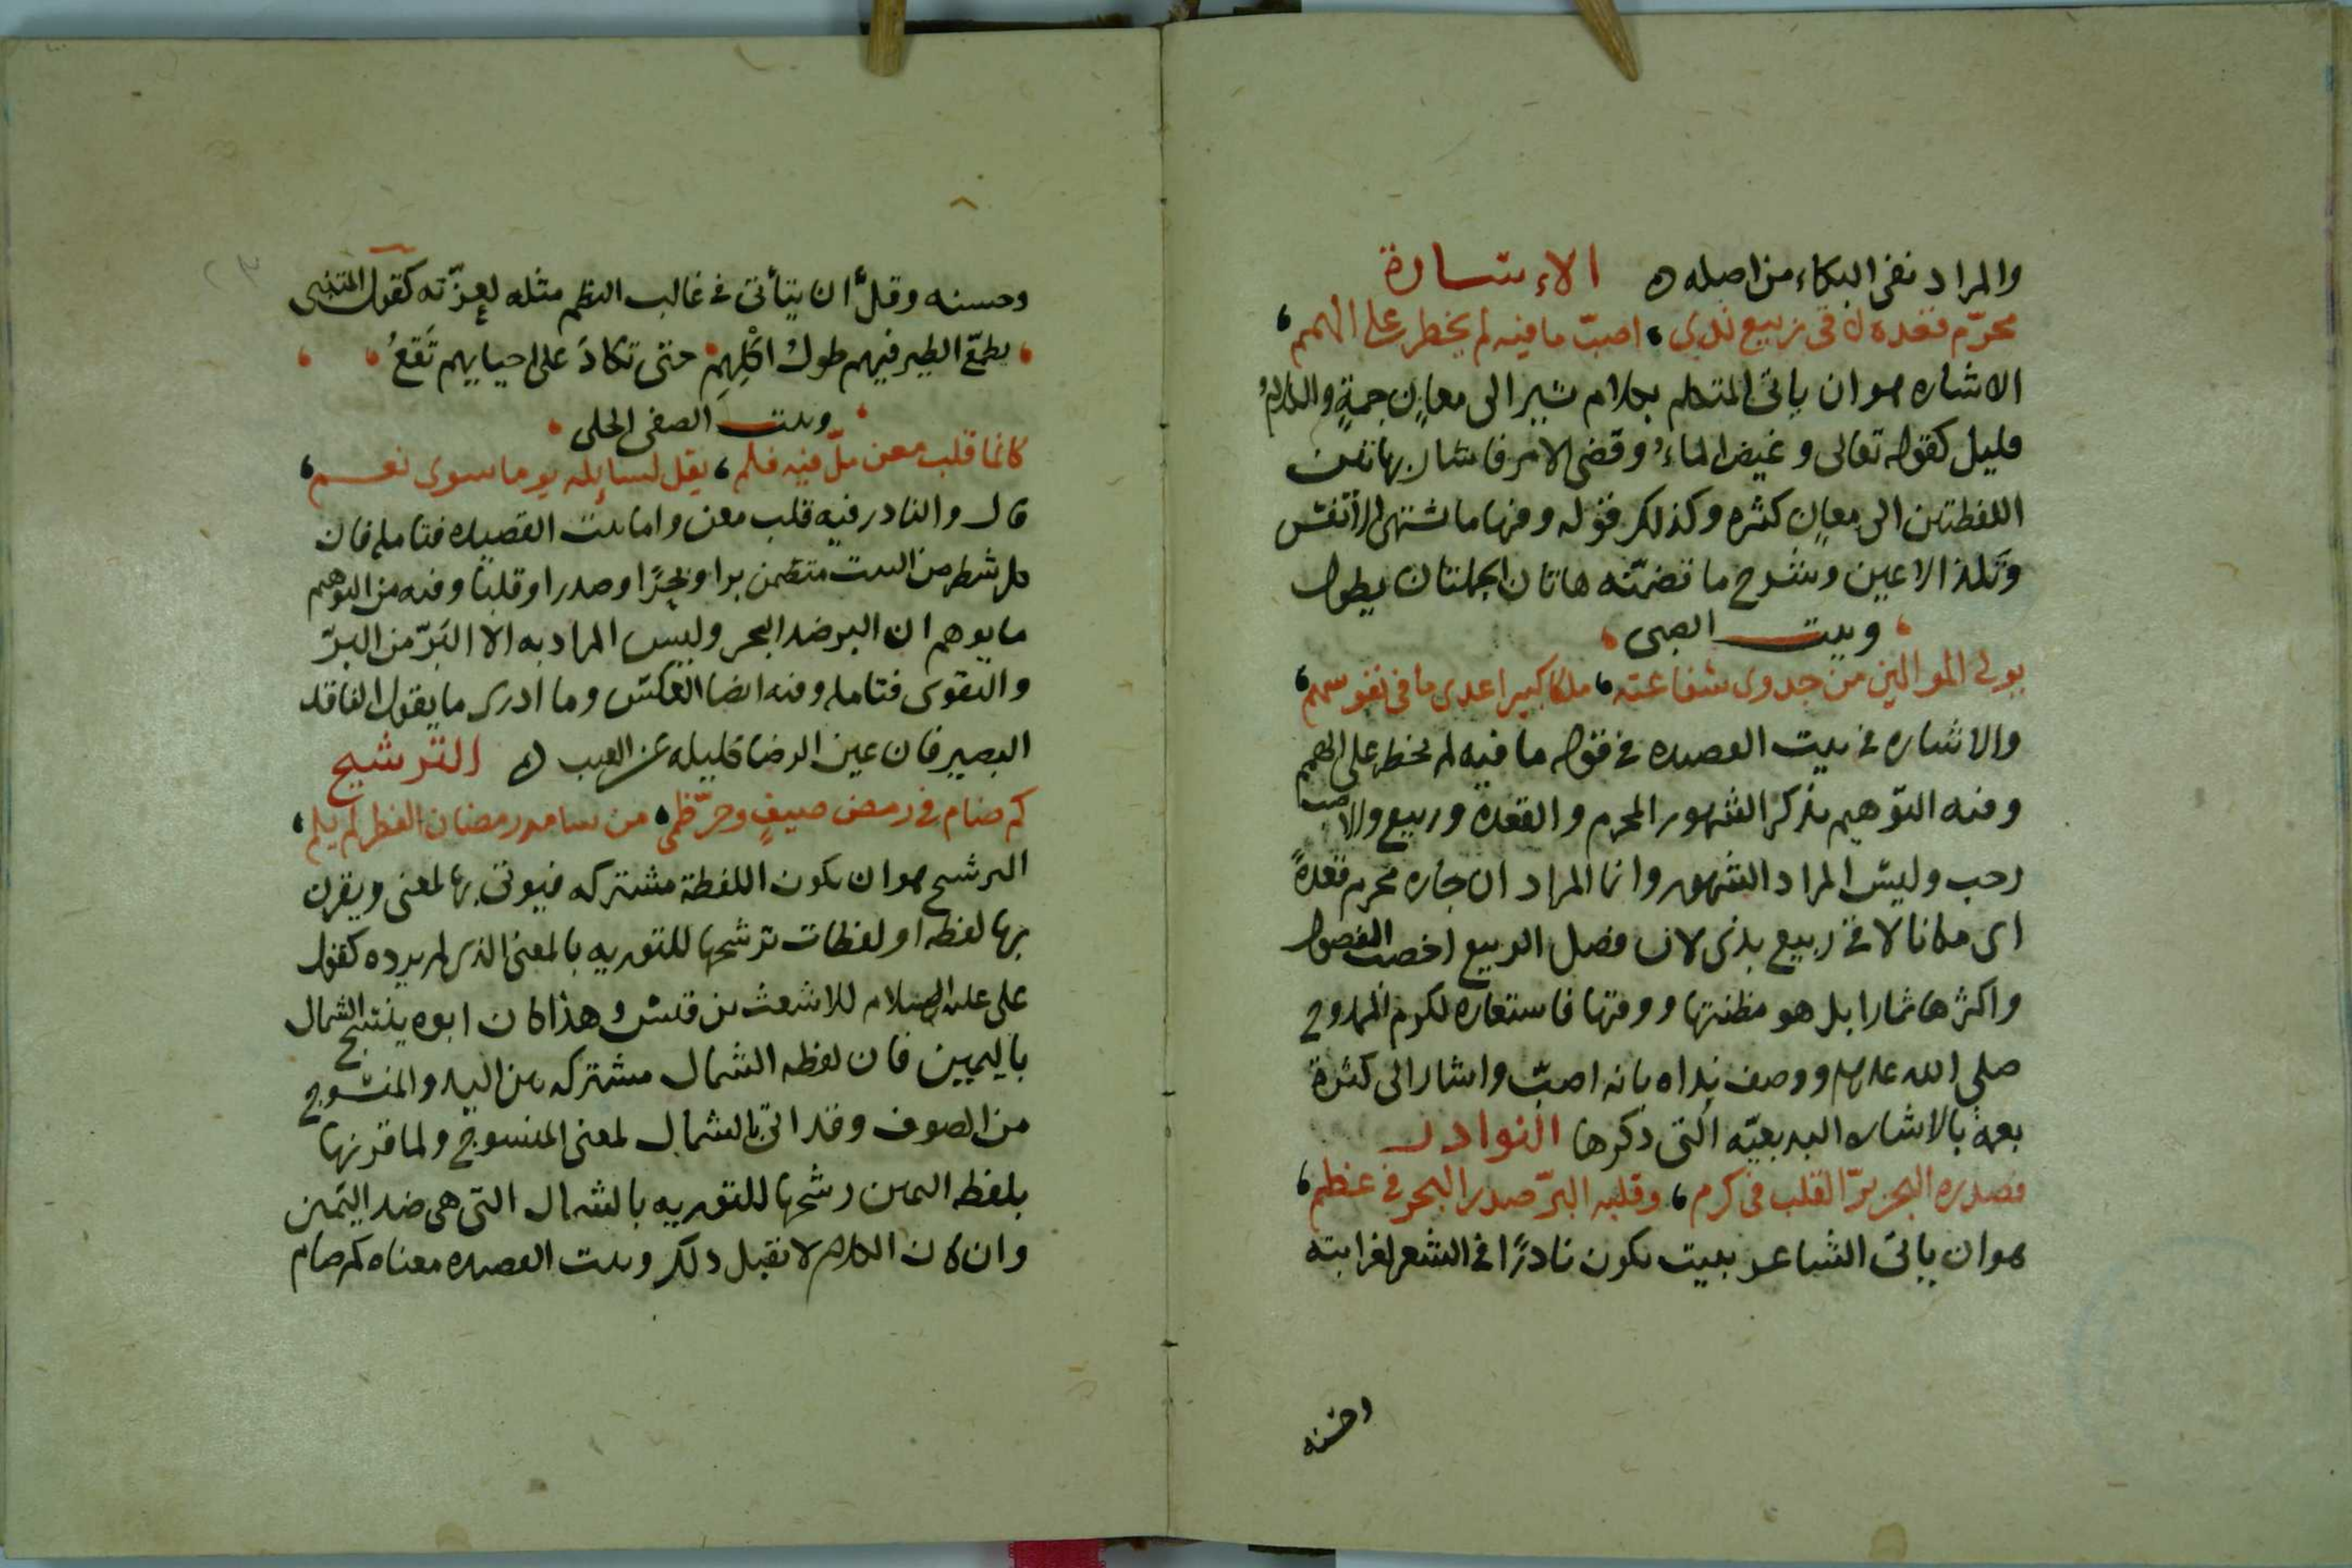 والمراد نفى البكاء من اصله الاشارة
محرّم قعده لا فى ربيع ندى اصبّ ما فيه لم يخطر على الهمم
الاشاره هو ان ياتى المتكلم بكلام يشير الى معانٍ جمةٍ والكلامُ
قليل كقوله تعالى وغيض الماءُ وقضى الامر فاشار بهاتين
اللفظتين الى معانٍ كثيره وكذلك قوله وفيها ما تشتهى الأنفس
وتَلذ الاعين وشرح ما تضمّنته هاتان الجملتان يطول
وبيت الصفى
يولى الموالين من جدوى شفاعته ملكا كبيرا عدى ما فى نفوسهم
والاشاره فى بيت القصيده فى قوله ما فيه لم يخطر على الهمم
وفيه التوهيم بذكر الشهور المحرم والقعده وربيع والاصب
رجب وليس المراد الشهور وانما المراد ان جاره محرم قعدةً
اى مكانا لا فى ربيع بذى لان فصل الربيع اخصب الفصول
واكثرها ثمارا بل هو مظنتها ووقتها فاستعاره لكرم الممدوح
صلى الله عليه وسلم ووصف نداه بانه اصبّ واشار الى كثرة
نعمه بالاشاره البديعيّه التى ذكرها النوادر
فصدره البحر برّ القلب فى كرم وقلبه البرّ صدر البحر فى عظم
هو ان ياتى الشاعر ببيت يكون نادرًا فى الشعر لغرابته
وحسنه
وحسنه وقلَّ ان يتأتى فى غالب النظم مثله لعزّته كقول المتنبى
يطمّع الطير فيهم طولُ اكْلِهِمْ حتى تكادَ على احيايهم تَقَعُ
وبيت الصفى الحلى
كانما قلب معن ملّ فيه فلم يقل لسايله يوما سوى نعم
قال والنادر فيه قلب معن واما بيت القصيده فتامله فان
كل شطر من البيت متضمن برا وبحرًا وصدرا وقلبا وفيه من التوهيم
ما يوهم ان البر ضد البحر وليس المراد به الا البَرّ من البِرّ
والتقوى فتامله وفيه ايضا العكس وما ادرى ما يقول الناقد
البصير فان عين الرضا كليله عن العيب الترشيح
كم صام فى رمض صيفٍ وحرّ ظمى من سامه رمضان الفطر لم يلم
الترشيح هو ان يكون اللفظة مشتركه فيوتى بها لمعنى ويقرن
بها لفظه او لفظات ترشحها للتوريه بالمعنى الذى لم يرده كقول
على عليه السلام للاشعث بن قيس وهذا كان ابوه ينسج الشمال
باليمين فان لفظه الشمال مشتركه بين اليد والمنسوج
من الصوف وقد اتى بالشمال لمعنى المنسوج ولما قرنها
بلفظه اليمين رشحها للتوريه بالشمال التى هى ضد اليمين
وان كان الكلام لا يقبل ذلك وبيت القصيده معناه كم صام